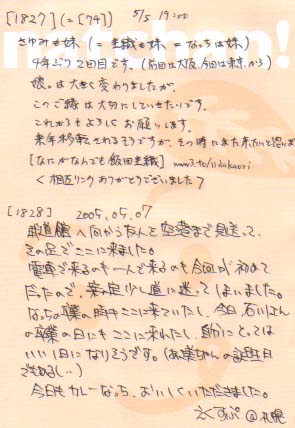 [1827](=[74]) 5/5 19:00
さゆみも妹(=圭織も妹=なっちは妹)
4年ぶり2回目です。(前回は大阪、今回は東京から)
娘。は大きく変わりましたが、
このご縁は大切にしていきたいです。
これからもよろしくお願いします。
来年移転されるそうですが、その時にまた来たいと思います
[なにがなんでも飯田圭織]
<相互リンクありがとうございました>
[1828] 2005.05.07
武道館へ向かう友人を空港まで見送って、
その足でここに来ました。
電車で来るのも一人で来るのも今回が初めて
だったので、案の定少し道に迷ってしまいました。
なっちの卒業の時もここに来ていたし、今日石川さん
の卒業の日にもここに来れたし、自分にとっては
いい1日になりそうです。
でもあるし…)
今日もカレーなっち、おいしくいただきました。
@札幌
natchan!